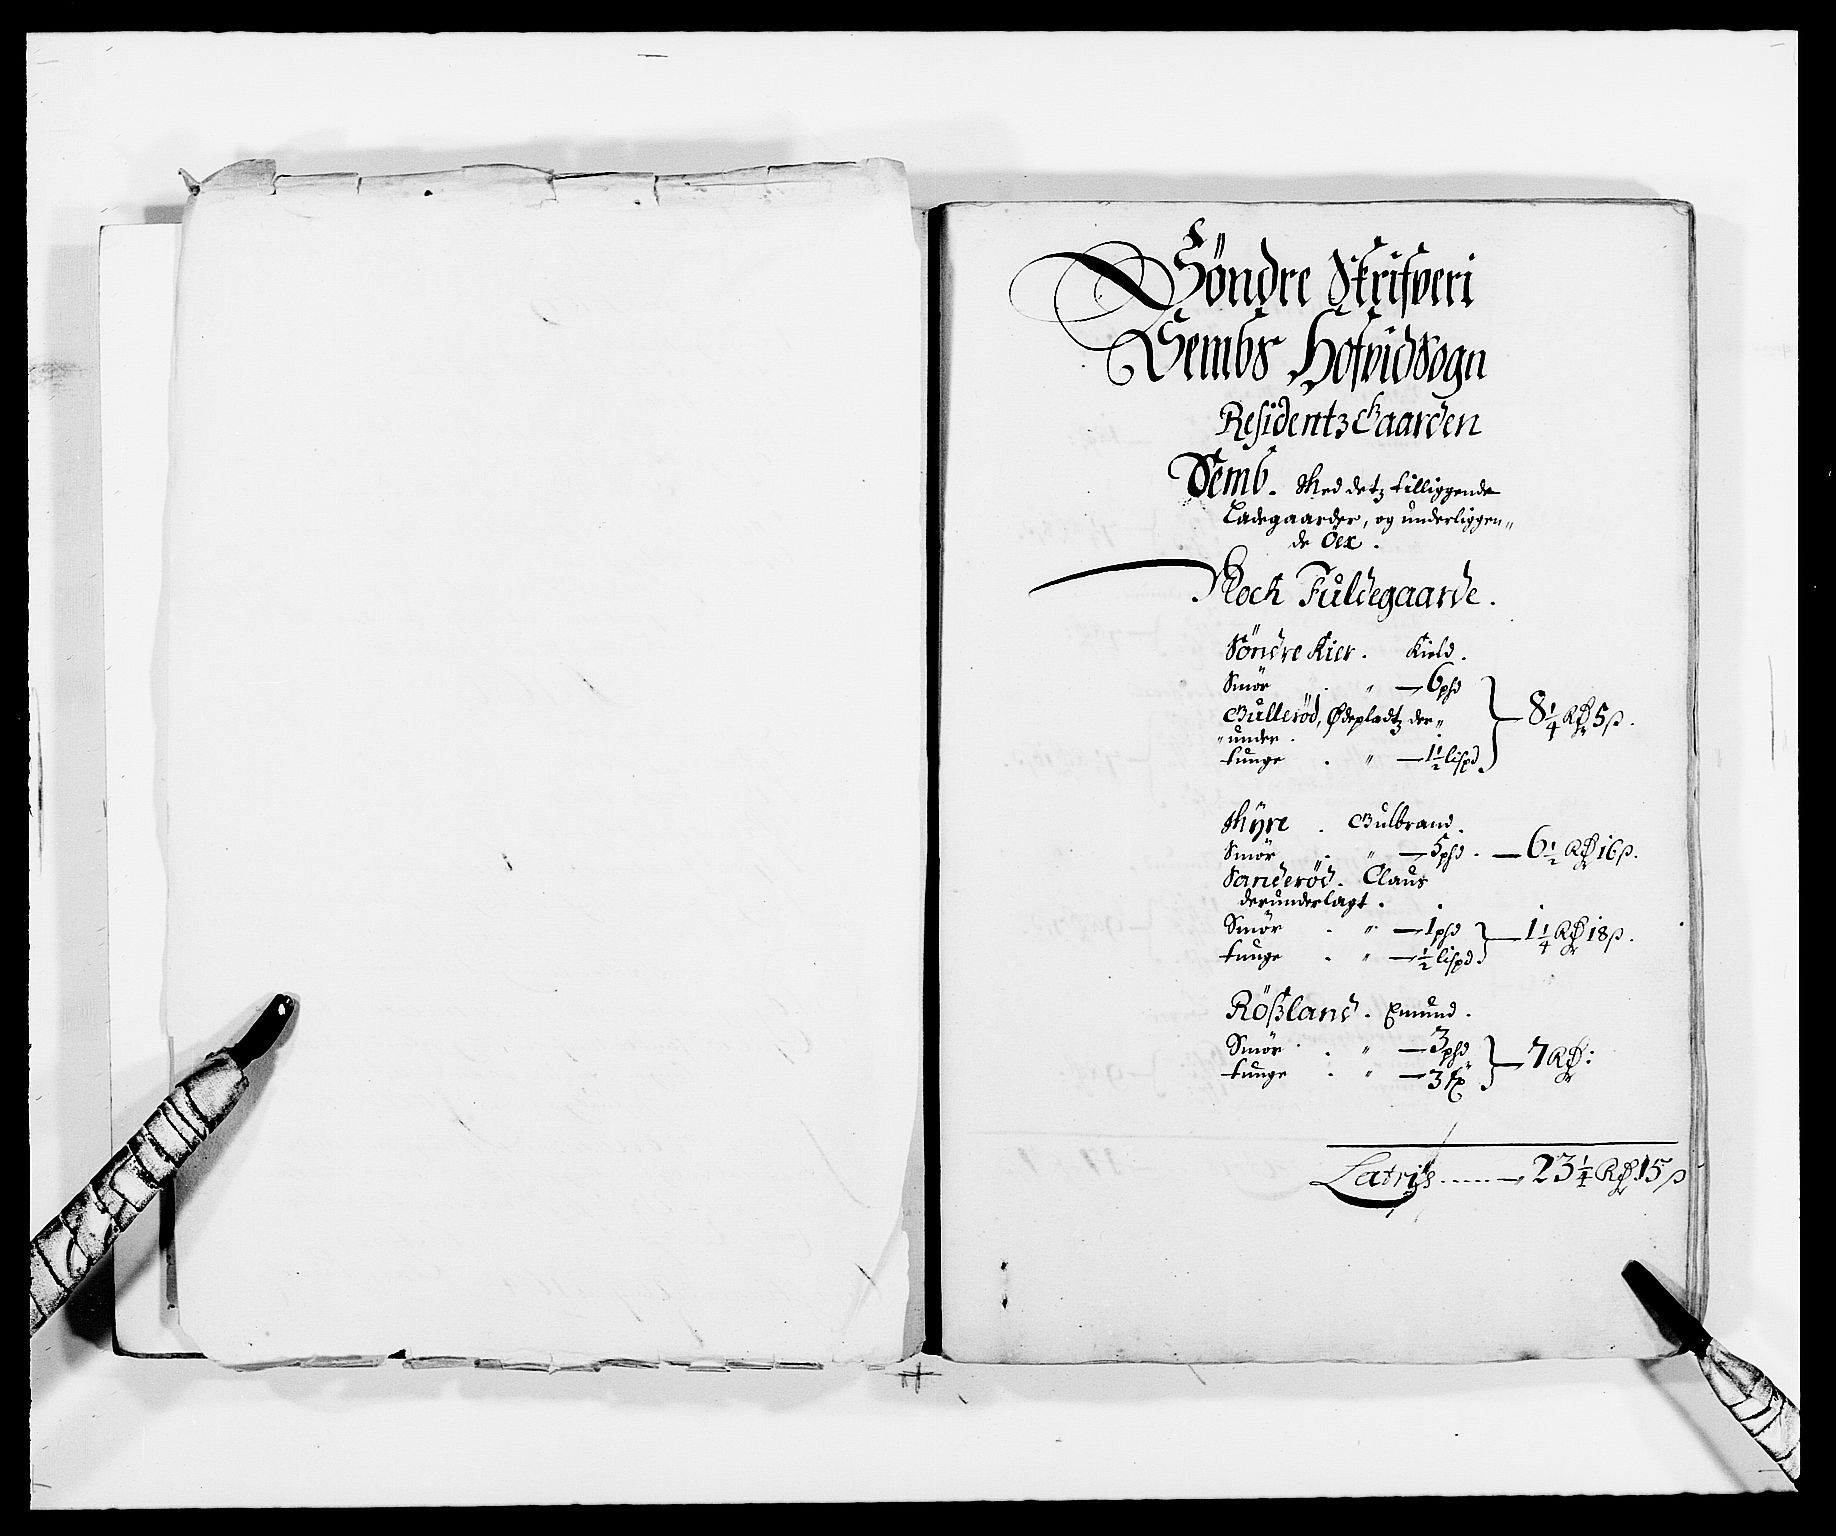 Söndre Skrifveri
Sembs Hofvidsogn
Residentz Gaarden
Semb. Med detz tilliggende
Ladegaarder, og underliggen„
de Öer.
Nock Fuldegaarde.
Söndre Kier. Kield.
Smör . „ — 6 psd
Bulleröd, Ødepladtz der„
„under.
tunge . „ — 1½ lispd } — 8¼ Rdr 5 ß.
Myre . Gulbrand.
Smör . „ — 5 psd . — 6½ Rdr 16 ß.
Sanderöd. Claus
derunderlagt .
Smör . „ — 1 psd
tunge . „ — ½ lispd. } — 1¼ Rdr 18 ß.
Rößland. Emund.
Smör . „ — 3 psd
tunge . „ — 3 } — 7 Rdr:
Latris ..... — 23¼ Rdr 15 ß